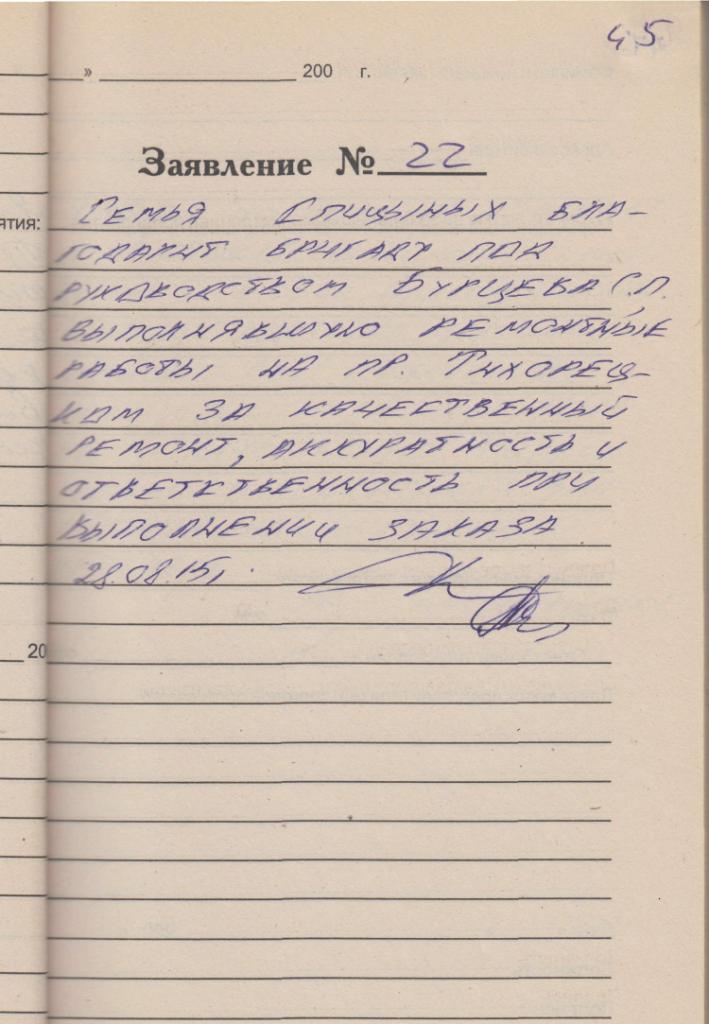 45
___» ____________________ 200 г.
Заявление № 22
ятия:
Семья Спицыных бла-
годарит бригаду под
руководством Бурцева С.П.
выполнявшую ремонтные
работы на пр. Тихорец-
ком за качественный
ремонт, аккуратность и
ответственность при
выполнении заказа
28.08.15г.
20